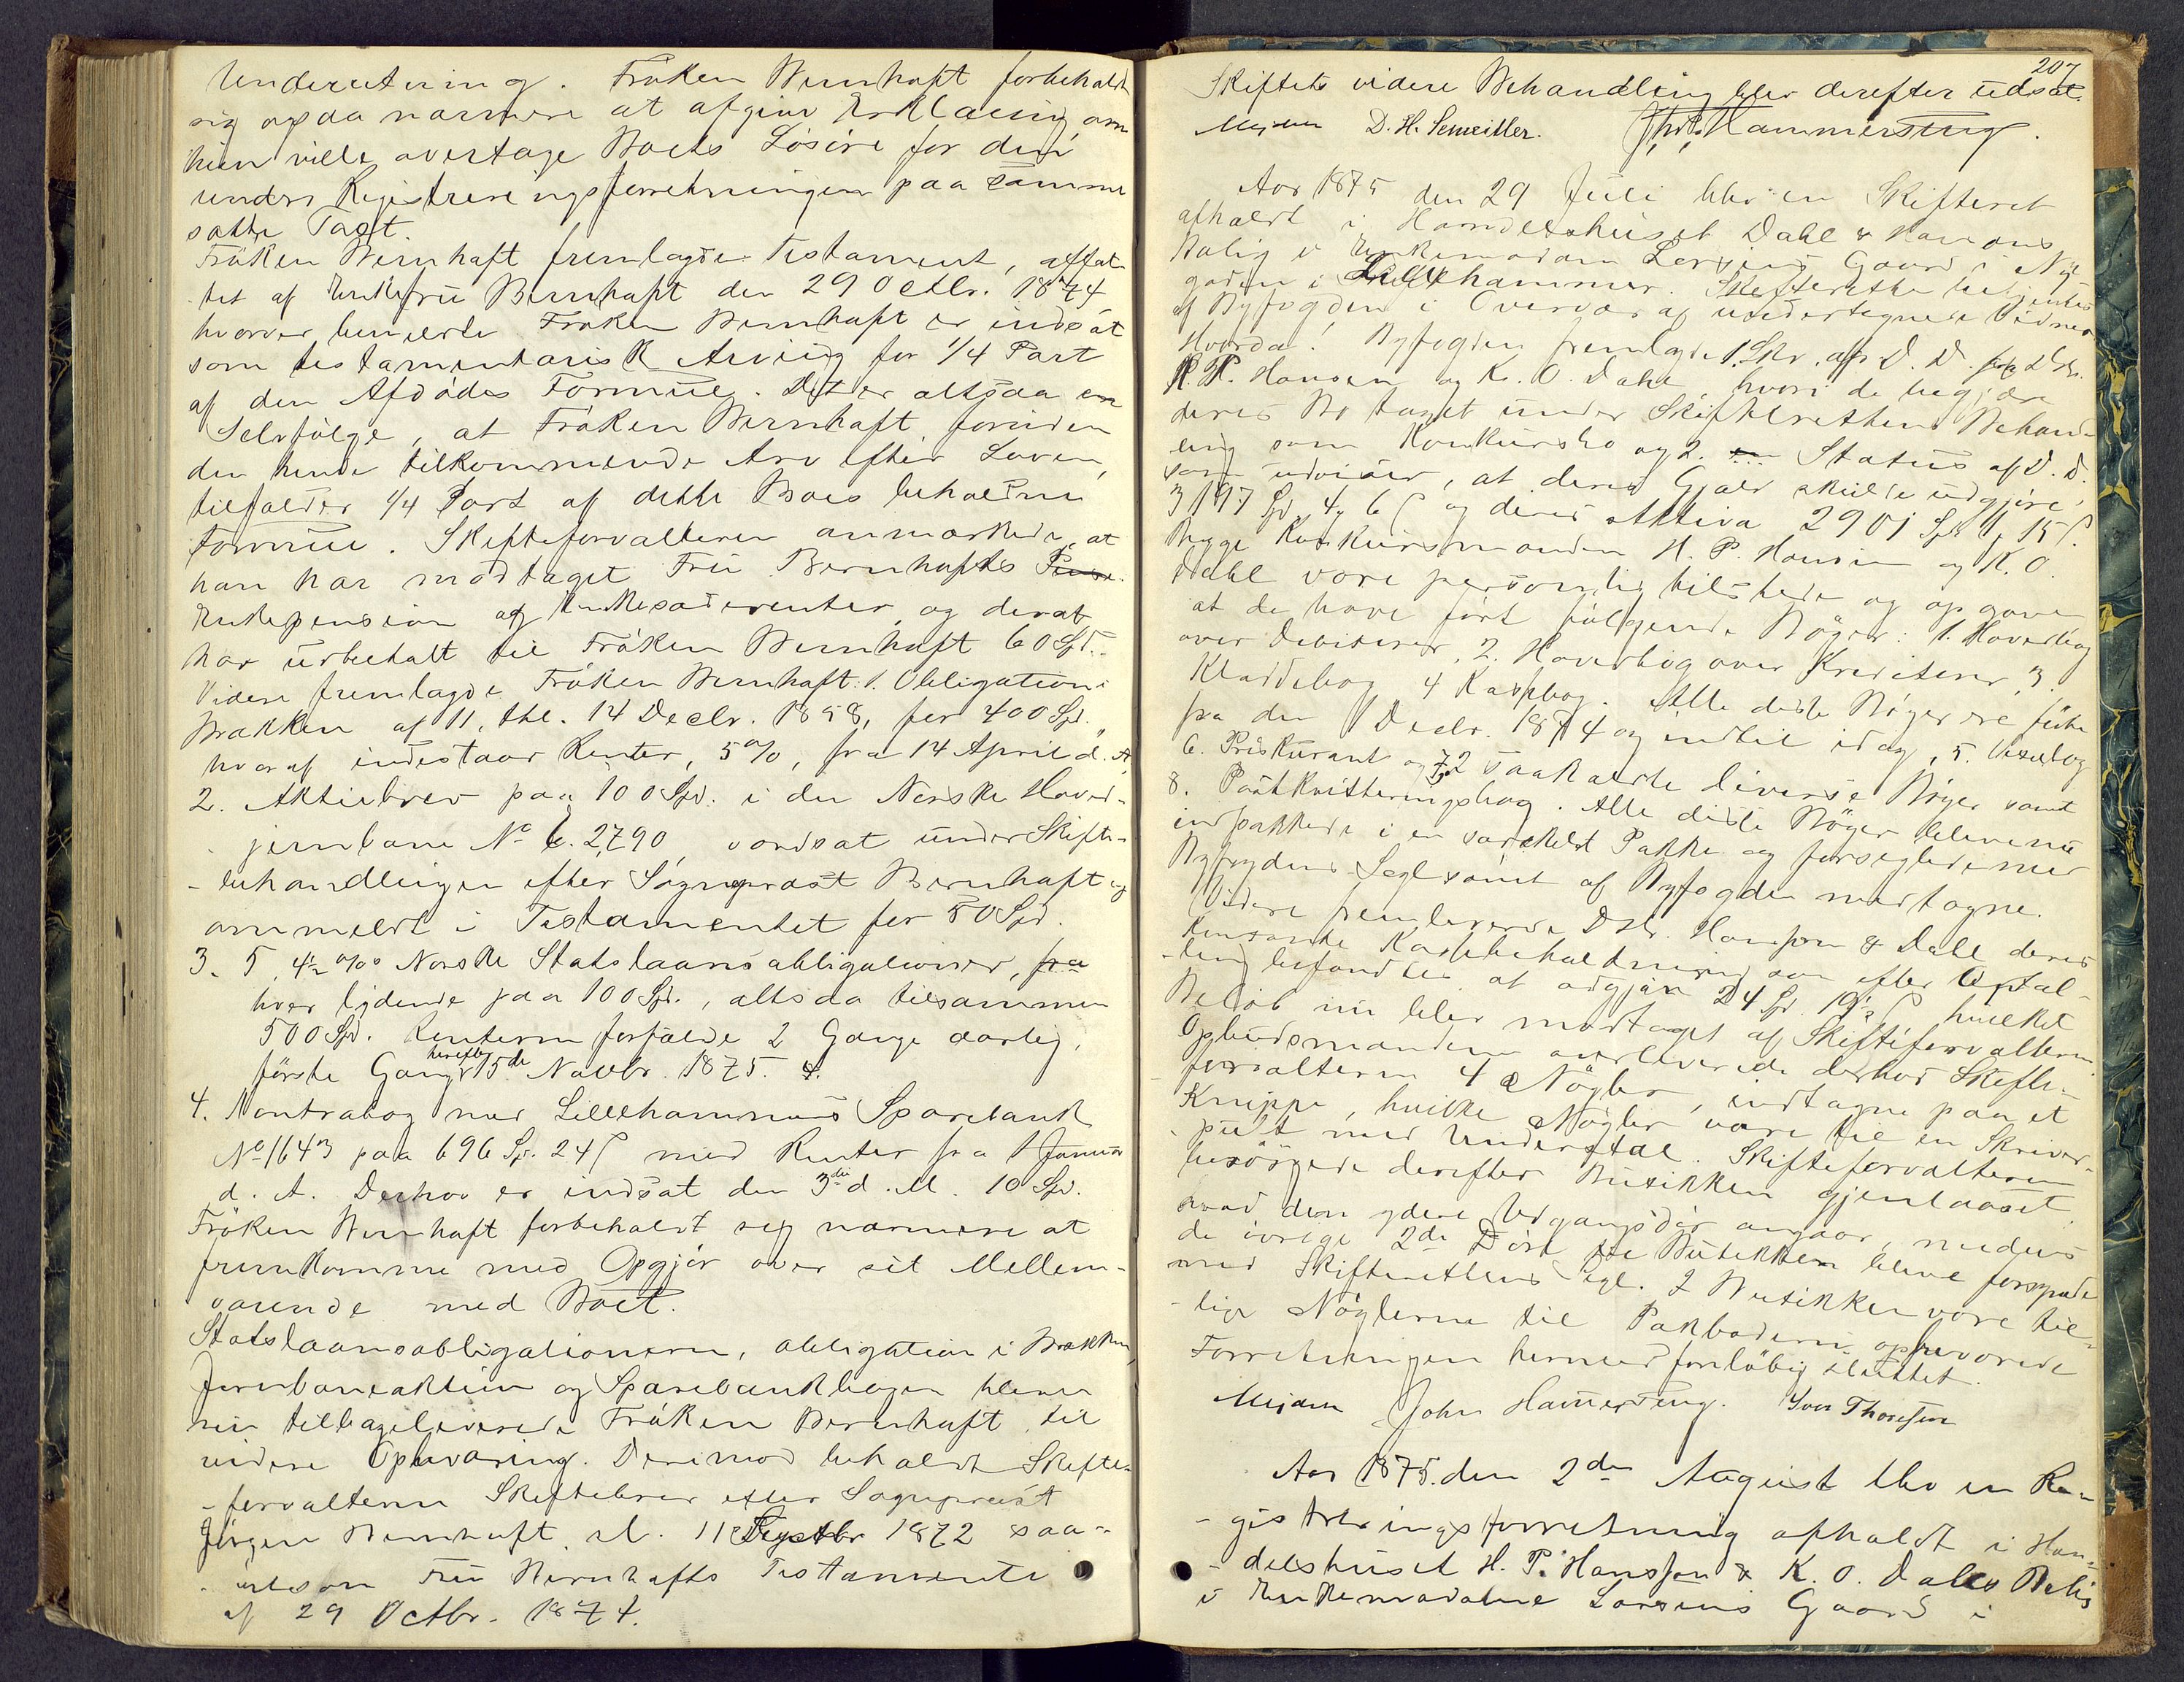 Underretning. Fröken Bernhaft forbeholdt
sig ogsaa nærmere at afgive Erklæring, om
hun ville overtage Boets Lösöre for den
under Registreringsforretningen paa samme
satte Taxt.
Fröken Bernhaft fremlagde Testament, affat-
tet af Enkefru Bernhaft den 29 Octbr. 1874
hvorver bemeldte Fröken Bernhaft er indsat
som testamentarisk Arving for 1/4 Part
af den Afdødes Formue. Det er altsaa en
Selvfölge, at Fröken Bernhaft, foruden
den hende tilkommende Arv efter Loven,
tilfalder 1/4 Part af dette Boes beholdne
Formue. Skifteforvalteren anmærkede, at
han har modtaget Fru Bernhafts
Enkepension og Enkesæderenter, og deraf
har udbetalt til Fröken Bernhaft 60 Spd.
Videre fremlagde Fröken Bernhaft: 1. Obligation i
Brakken af 11, thl. 14 Decbr. 1858, for 400 Spd.
hvoraf indestaar Renter, 5%, fra 14 April d. A.
2. Aktiebrev paa 100 Spd. i den Norske Hoved-
jernbane No 2,790 værdsat under Skifte-
-behandlingen efter Sogneprœst Bernhaft og
anmeldt i Testamentet for 50 Spd.
3. 5, 4½ % Norske Statslaansobligationer, fra
hver lydende paa 100 Spd., altsaa tilsammen
500 Spd. Renterne forfalde 2 Gange aarlig,
förste Gang herefter 15de Novbr. 1875. 4.
4. Kontrabog med Lillehammers Sparebank
No 1643 paa 696 Sp. 24 ß med Renter fra 1 Januar
d. A. Derhos er indsat den 3die d. M. 10 Spd.
Fröken Bernhaft forbeholdt sig nærmere at
fremkomme med Opgjör over sit Mellem-
værende med Boet.
Statslaansobligationerne, obligation i Brakken,
Jernbaneaktien og Sparebankbogen bleve
nu tilbageleverede Fröken Bernhaft, til
videre Opbevaring. Derimod beholdt Skifte-
-forvalteren Skiftebrev efter Sogneprœst
Jörgen Bernhaft, d. 11 Septbr 1872 saa-
-velsom Fru Bernhafts Testamente
af 29 Octbr. 1874.
207
Skiftets videre Behandling blev derefter udsat.
Mejdell D. H. Semeiller. Hammerseng.
Aar 1875 den 29 Juli blev en Skifteret
afholdt i Handelshuset Dahl & Hansens
Bolig i Enkemadam Larsens Gaard i Ny-
gaden i Lillehammer. Skifteretten betjentes
af Byfogden i Overvær af undertegnede Vidner
Hvorda: Byfogden fremlagde 1. Skr. af D. D. fra DHr.
H. P. Hansen og K. O. Dahl hvori de begjære
deres Bo taget under Skifterettens Behand-
ling som Konkursbo og 2. Status af D. D.
som udviser, at deres Gjæld skulde udgjöre
3197 Spd 4 6 ß og deres Aktiva 2901 Spd 1 15 ß.
Begge Konkursmænden H. P. Hansen og K. O.
Dahl vare personlig tilstede og opgave
at de have fört fölgende Böger: 1. Hovedbog
over Debitorer, 2. Hovedbog over Kreditorer, 3.
Kladdebog 4 Kassebog. Alle disse Böger ere förte
fra den 1 Decbr. 1874 og indtil idag, 5. Vexelbog
6. Priskurant og 7. 2 saakaldte diverse Böger samt
8. Postkvitteringsbog. Alle disse Böger bleve nu
indpakkede i en særskilt Pakke og forseglede med
Byfogdens Segl samt af Byfogden modtagne.
Videre fremleverede DHr. Hansen & Dahl deres
kontante Kassebeholdning som efter Optæl-
-ling befandtes at udgjöre 24 Spd. 19½ ß hvilket
Belöb nu blev modtaget af Skifteforvalteren.
Opbudsmændene overleverede derhos Skifte-
forvalteren 4 Nögler, indtagne paa et
Knippe, hvilke Nögler vare til en Skriver-
pult med Understel. Skifteforvalteren
besörgede derefter Butikken gjenlaaset,
hvad den ydre Udgangsdör angaar, medens
de övrige 2de Döre til Butikken bleve forseglede
med Skifterettens Segl. I Butikken vare til-
lige Nöglerne til Pakboderne opbevarede
Forretningen hermed forelöbig sluttet.
Mejdell John Hammerseng. Iver Thoresen
Aar 1875. den 2den August blev en Re-
-gistreringsforretning afholdt i Han-
-delshuset H. P. Hansen & K. O. Dahls Bolig
i Enkemadame Larsens Gaard i